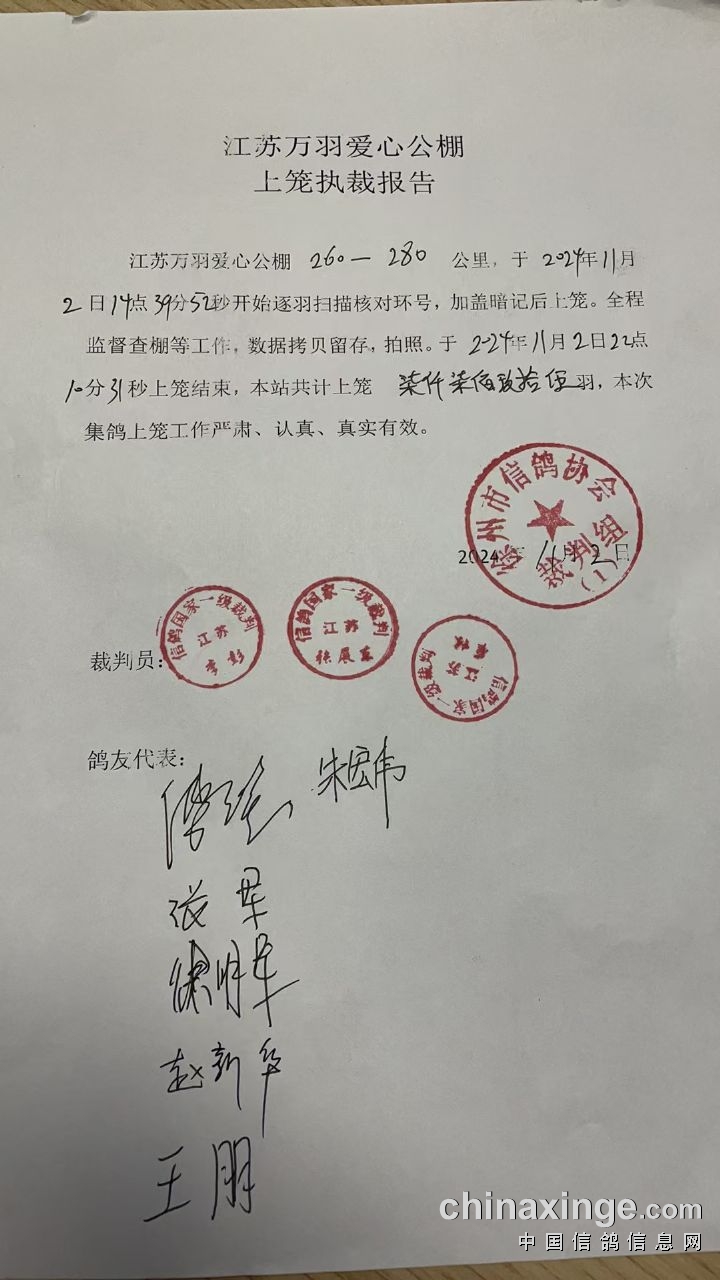 江苏万羽爱心公棚
上笼执裁报告
江苏万羽爱心公棚 260—280 公里，于 2024年11月
2日14点39分52秒开始逐羽扫描核对环号，加盖暗记后上笼。全程
监督查棚等工作，数据拷贝留存，拍照。于 2024年11月2日22点
10分31秒上笼结束，本站共计上笼 柒仟柒佰玖拾伍羽，本次
集鸽上笼工作严肃、认真、真实有效。
徐州市信鸽协会
裁判组
（1）
2024年11月2日
裁判员：
信鸽国家一级裁判
江苏
李彭
信鸽国家一级裁判
江苏
信鸽国家一级裁判
江苏
鸽友代表：
朱宏伟
张军
明军
赵新华
王朋
chinaxinge.com
中国信鸽信息网